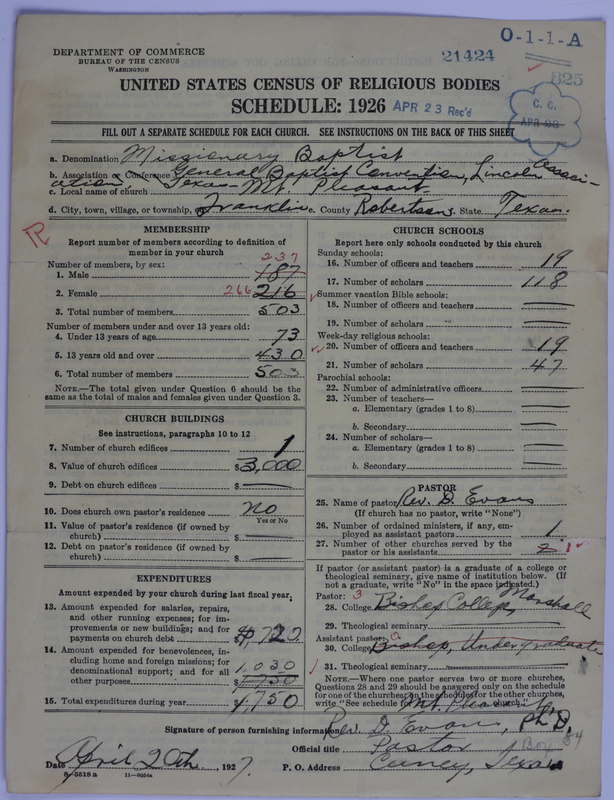 DEPARTMENT OF COMMERCE
BUREAU OF THE CENSUS
WASHINGTON
21424
O-1-1-A
825
UNITED STATES CENSUS OF RELIGIOUS BODIES
SCHEDULE: 1926
APR 23 Rec'd
C. C.
FILL OUT A SEPARATE SCHEDULE FOR EACH CHURCH. SEE INSTRUCTIONS ON THE BACK OF THIS SHEET
a. Denomination Missionary Baptist
b. Association or Conference General Baptist Convention, Lincoln Associ-
ation
c. Local name of church Texas - Mt. Pleasant
d. City, town, village, or township, Franklin e. County Robertson State Texas
MEMBERSHIP
Report number of members according to definition of
member in your church
Number of members, by sex:
237
1. Male 187
2. Female 266 216
3. Total number of members 503
Number of members under and over 13 years old:
4. Under 13 years of age 73
5. 13 years old and over 430
6. Total number of members 503
NOTE.—The total given under Question 6 should be the
same as the total of males and females given under Question 3.
CHURCH BUILDINGS
See instructions, paragraphs 10 to 12
7. Number of church edifices 1
8. Value of church edifices $3,000
9. Debt on church edifices $
10. Does church own pastor's residence no
Yes or No
11. Value of pastor's residence (if owned by
church) $
12. Debt on pastor's residence (if owned by
church) $
EXPENDITURES
Amount expended by your church during last fiscal year:
13. Amount expended for salaries, repairs,
and other running expenses; for im-
provements or new buildings; and for
payments on church debt $ 720
14. Amount expended for benevolences, in-
cluding home and foreign missions; for
denominational support; and for all
other purposes 1,030
15. Total expenditures during year $1,750
CHURCH SCHOOLS
Report here only schools conducted by this church
Sunday schools:
16. Number of officers and teachers 19
17. Number of scholars 118
Summer vacation Bible schools:
18. Number of officers and teachers
19. Number of scholars
Week-day religious schools:
20. Number of officers and teachers 19
21. Number of scholars 47
Parochial schools:
22. Number of administrative officers
23. Number of teachers—
a. Elementary (grades 1 to 8)
b. Secondary
24. Number of scholars—
a. Elementary (grades 1 to 8)
b. Secondary
PASTOR
25. Name of pastor Rev. D. Evans
(If church has no pastor, write "None")
26. Number of ordained ministers, if any, em-
ployed as assistant pastors 1
27. Number of other churches served by the
pastor or his assistants 2 1
If pastor (or assistant pastor) is a graduate of a college or
theological seminary, give name of institution below. (If
not a graduate, write "No" in the space indicated.)
Pastor: 3
28. College Bishop College, Marshall
29. Theological seminary
Assistant pastor:
30. College Bishop, Undergraduate
31. Theological seminary
NOTE.—Where one pastor serves two or more churches,
Questions 28 and 29 should be answered only on the schedule
for one of the churches; on the schedules for the other churches,
write "See schedule for Mt. Pleasant church."
Signature of person furnishing information Rev. D. Evans, Ph.D.
Official title Pastor
Date April 20th, 1927.
P. O. Address Caney, Texas Box 84
8-5518 a 11-9054a